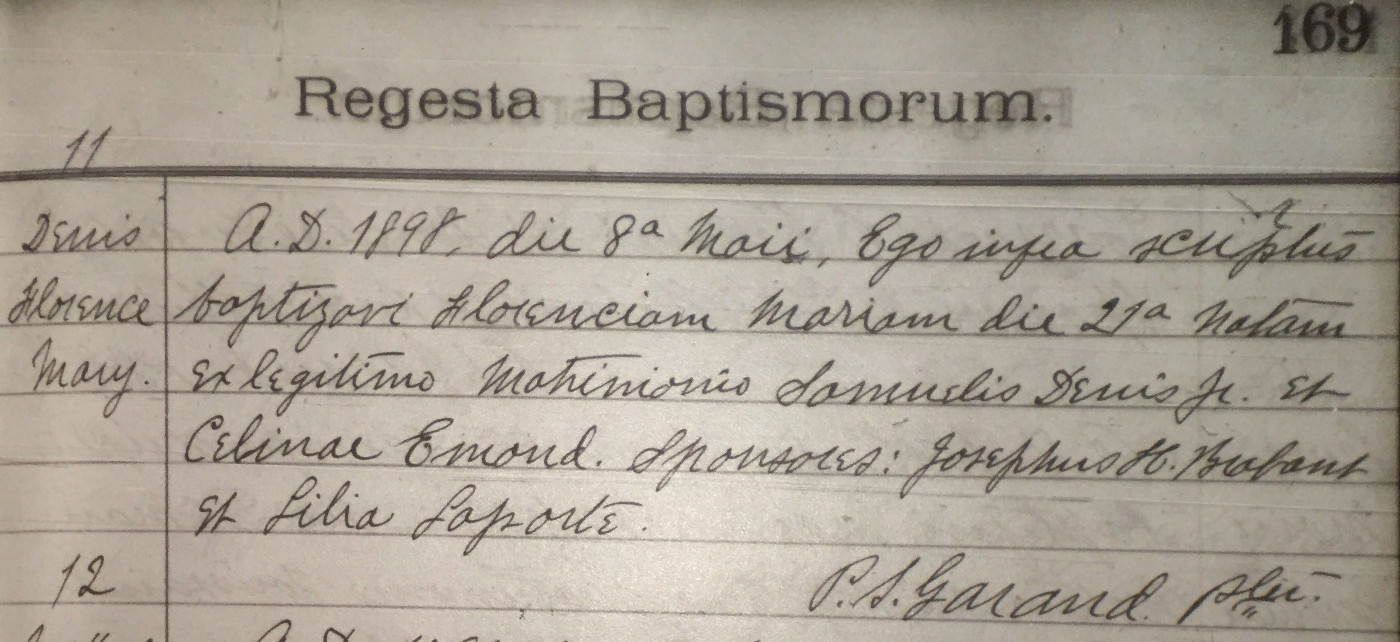 169
Regesta Baptismorum.
11
Denis A.D. 1898, die 8a Maii, Ego infra scriptus
Florence baptizavi Florenciam Mariam die 21a natam
Mary. ex legitimo Matrimonio Samuelis Denis Jr. et
Celinae Emond. Sponsores: Josephus H. Brabant
et Lilia Laporte.
12 P.S. Garand. pter.